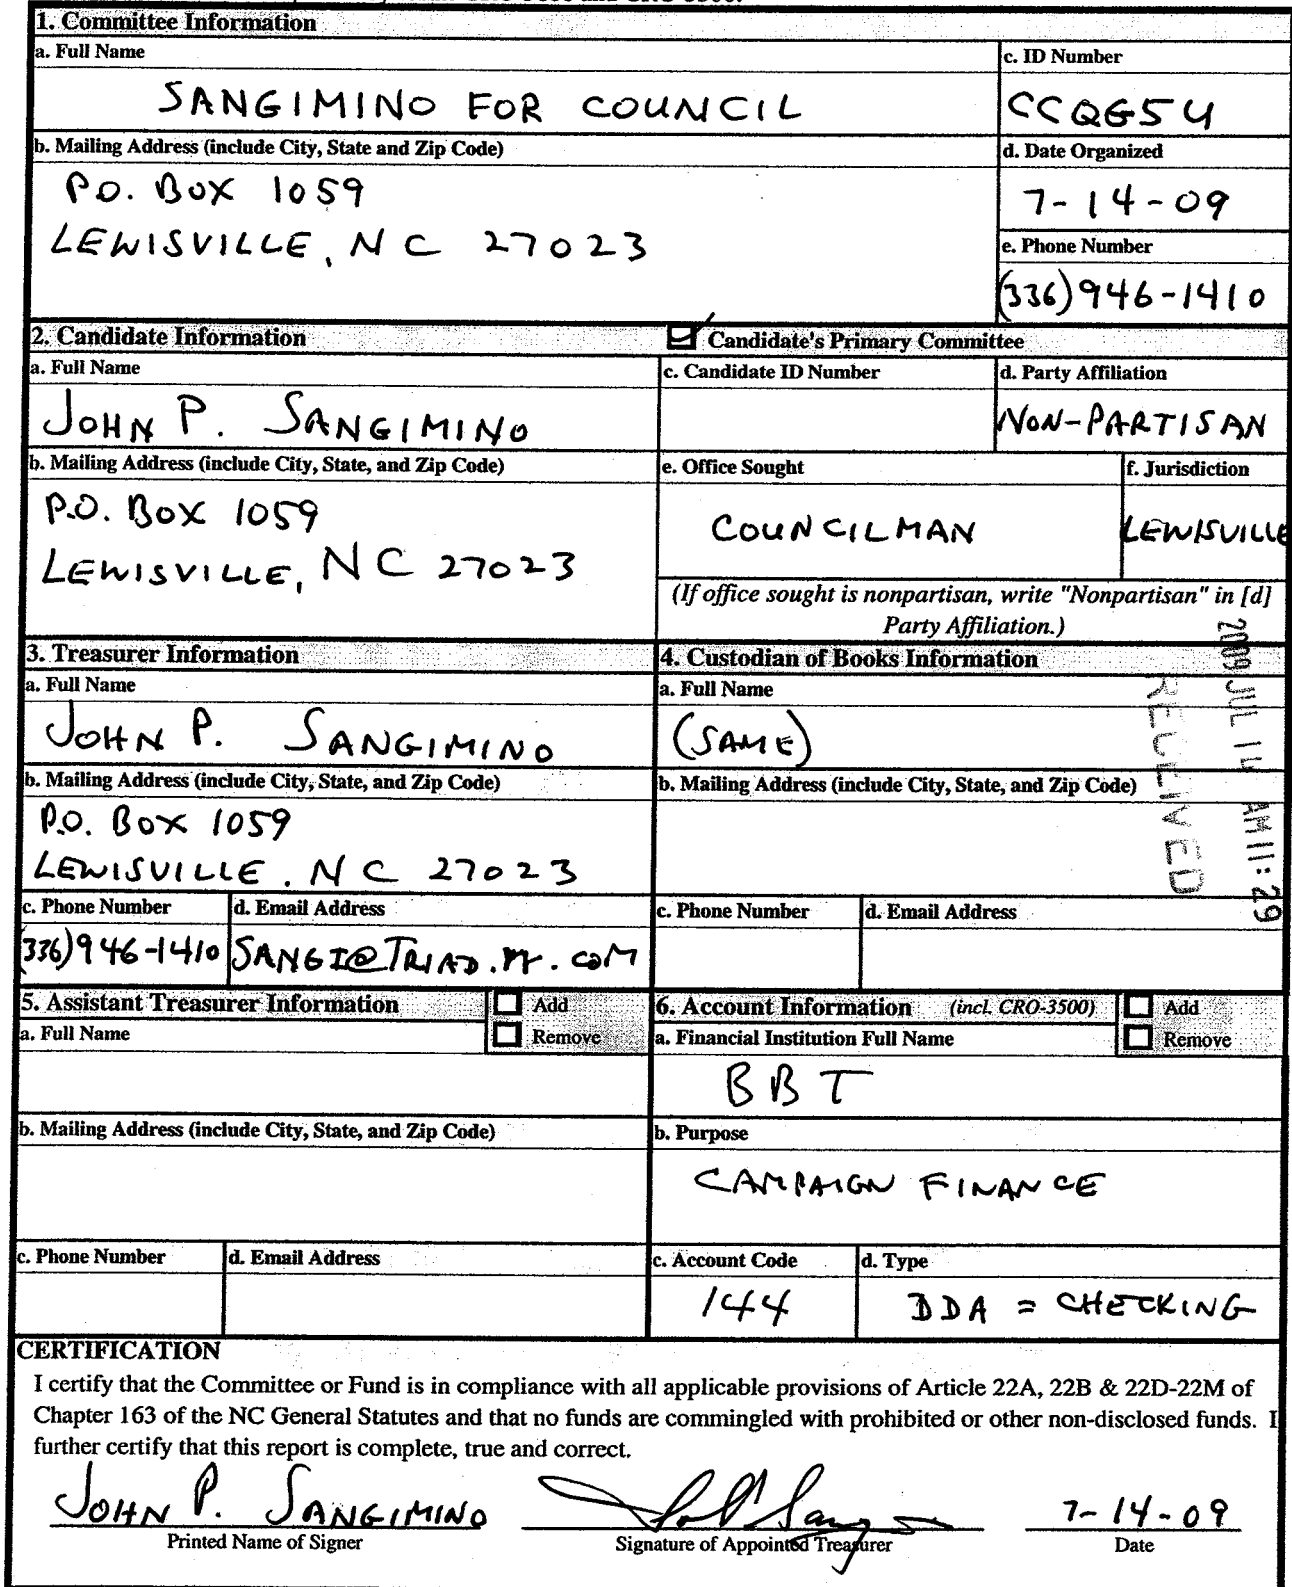 1. Committee Information
a. Full Name
c. ID Number
SANGIMINO FOR COUNCIL
CCQG54
b. Mailing Address (include City, State and Zip Code)
d. Date Organized
P.O. BOX 1059
7-14-09
LEWISVILLE, NC 27023
e. Phone Number
(336)946-1410
2. Candidate Information
Candidate's Primary Committee
a. Full Name
c. Candidate ID Number
d. Party Affiliation
JOHN P. SANGIMINO
NON-PARTISAN
b. Mailing Address (include City, State, and Zip Code)
e. Office Sought
f. Jurisdiction
P.O. BOX 1059
LEWISVILLE, NC 27023
COUNCILMAN
LEWISVILLE
(If office sought is nonpartisan, write "Nonpartisan" in [d]
Party Affiliation.)
3. Treasurer Information
a. Full Name
JOHN P. SANGIMINO
b. Mailing Address (include City, State, and Zip Code)
P.O. BOX 1059
LEWISVILLE, NC 27023
c. Phone Number
d. Email Address
(336)946-1410
SANGI@TRIAD.RR.COM
4. Custodian of Books Information
a. Full Name
(SAME)
b. Mailing Address (include City, State, and Zip Code)
c. Phone Number
d. Email Address
2009 JUL 14 AM 11:29
RECEIVED
5. Assistant Treasurer Information
Add
Remove
a. Full Name
b. Mailing Address (include City, State, and Zip Code)
c. Phone Number
d. Email Address
6. Account Information (incl. CRO-3500)
Add
Remove
a. Financial Institution Full Name
BBT
b. Purpose
CAMPAIGN FINANCE
c. Account Code
d. Type
144
DDA = CHECKING
CERTIFICATION
I certify that the Committee or Fund is in compliance with all applicable provisions of Article 22A, 22B & 22D-22M of
Chapter 163 of the NC General Statutes and that no funds are commingled with prohibited or other non-disclosed funds. I
further certify that this report is complete, true and correct.
JOHN P. SANGIMINO
7-14-09
Printed Name of Signer
Signature of Appointed Treasurer
Date